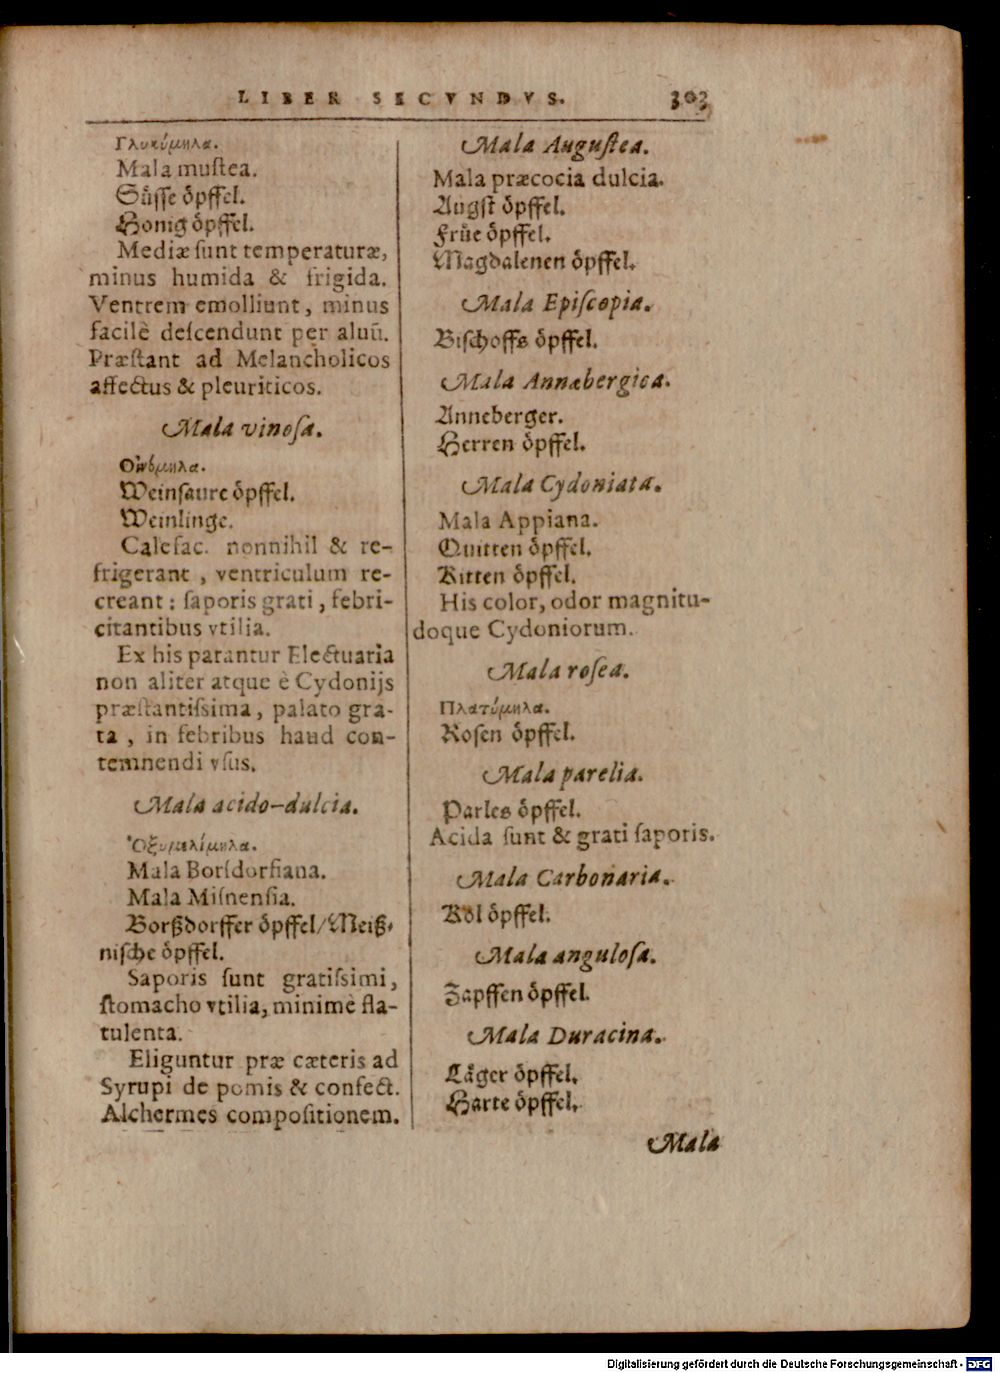 LIBER SECVNDVS. 303
Γλυκύμηλα.
Mala muſtea.
Suͤſſe oͤpffel.
Honig oͤpffel.
Mediæ ſunt temperaturæ,
minus humida & frigida.
Ventrem emolliunt, minus
facilè deſcendunt per aluũ.
Præſtant ad Melancholicos
affectus & pleuriticos.
Mala vinoſa.
Οἰνόμηλα.
Weinſaure oͤpffel.
Weinlinge.
Calefac. nonnihil & re-
frigerant, ventriculum re-
creant: ſaporis grati, febri-
citantibus vtilia.
Ex his parantur Electuaria
non aliter atque è Cydonijs
præſtantiſsima, palato gra-
ta, in febribus haud con-
temnendi vſus.
Mala acido-dulcia.
Ὀξυμελίμηλα.
Mala Borſdorfiana.
Mala Miſnenſia.
Borßdorffer oͤpffel/Meiß-
niſche oͤpffel.
Saporis ſunt gratiſsimi,
ſtomacho vtilia, minimè fla-
tulenta.
Eliguntur præ cæteris ad
Syrupi de pomis & confect.
Alchermes compoſitionem.
Mala Auguſtea.
Mala præcocia dulcia.
Augſt oͤpffel.
Fruͤe oͤpffel.
Magdalenen oͤpffel.
Mala Epiſcopia.
Biſchoffs oͤpffel.
Mala Annæbergica.
Anneberger.
Herren oͤpffel.
Mala Cydoniata.
Mala Appiana.
Quitten oͤpffel.
Kitten oͤpffel.
His color, odor magnitu-
doque Cydoniorum.
Mala roſea.
Πλατύμηλα.
Roſen oͤpffel.
Mala parelia.
Parles oͤpffel.
Acida ſunt & grati ſaporis.
Mala Carbonaria.
Kol oͤpffel.
Mala anguloſa.
Zapffen oͤpffel.
Mala Duracina.
Laͤger oͤpffel.
Harte oͤpffel.
Mala
Digitalisierung gefördert durch die Deutsche Forschungsgemeinschaft - DFG